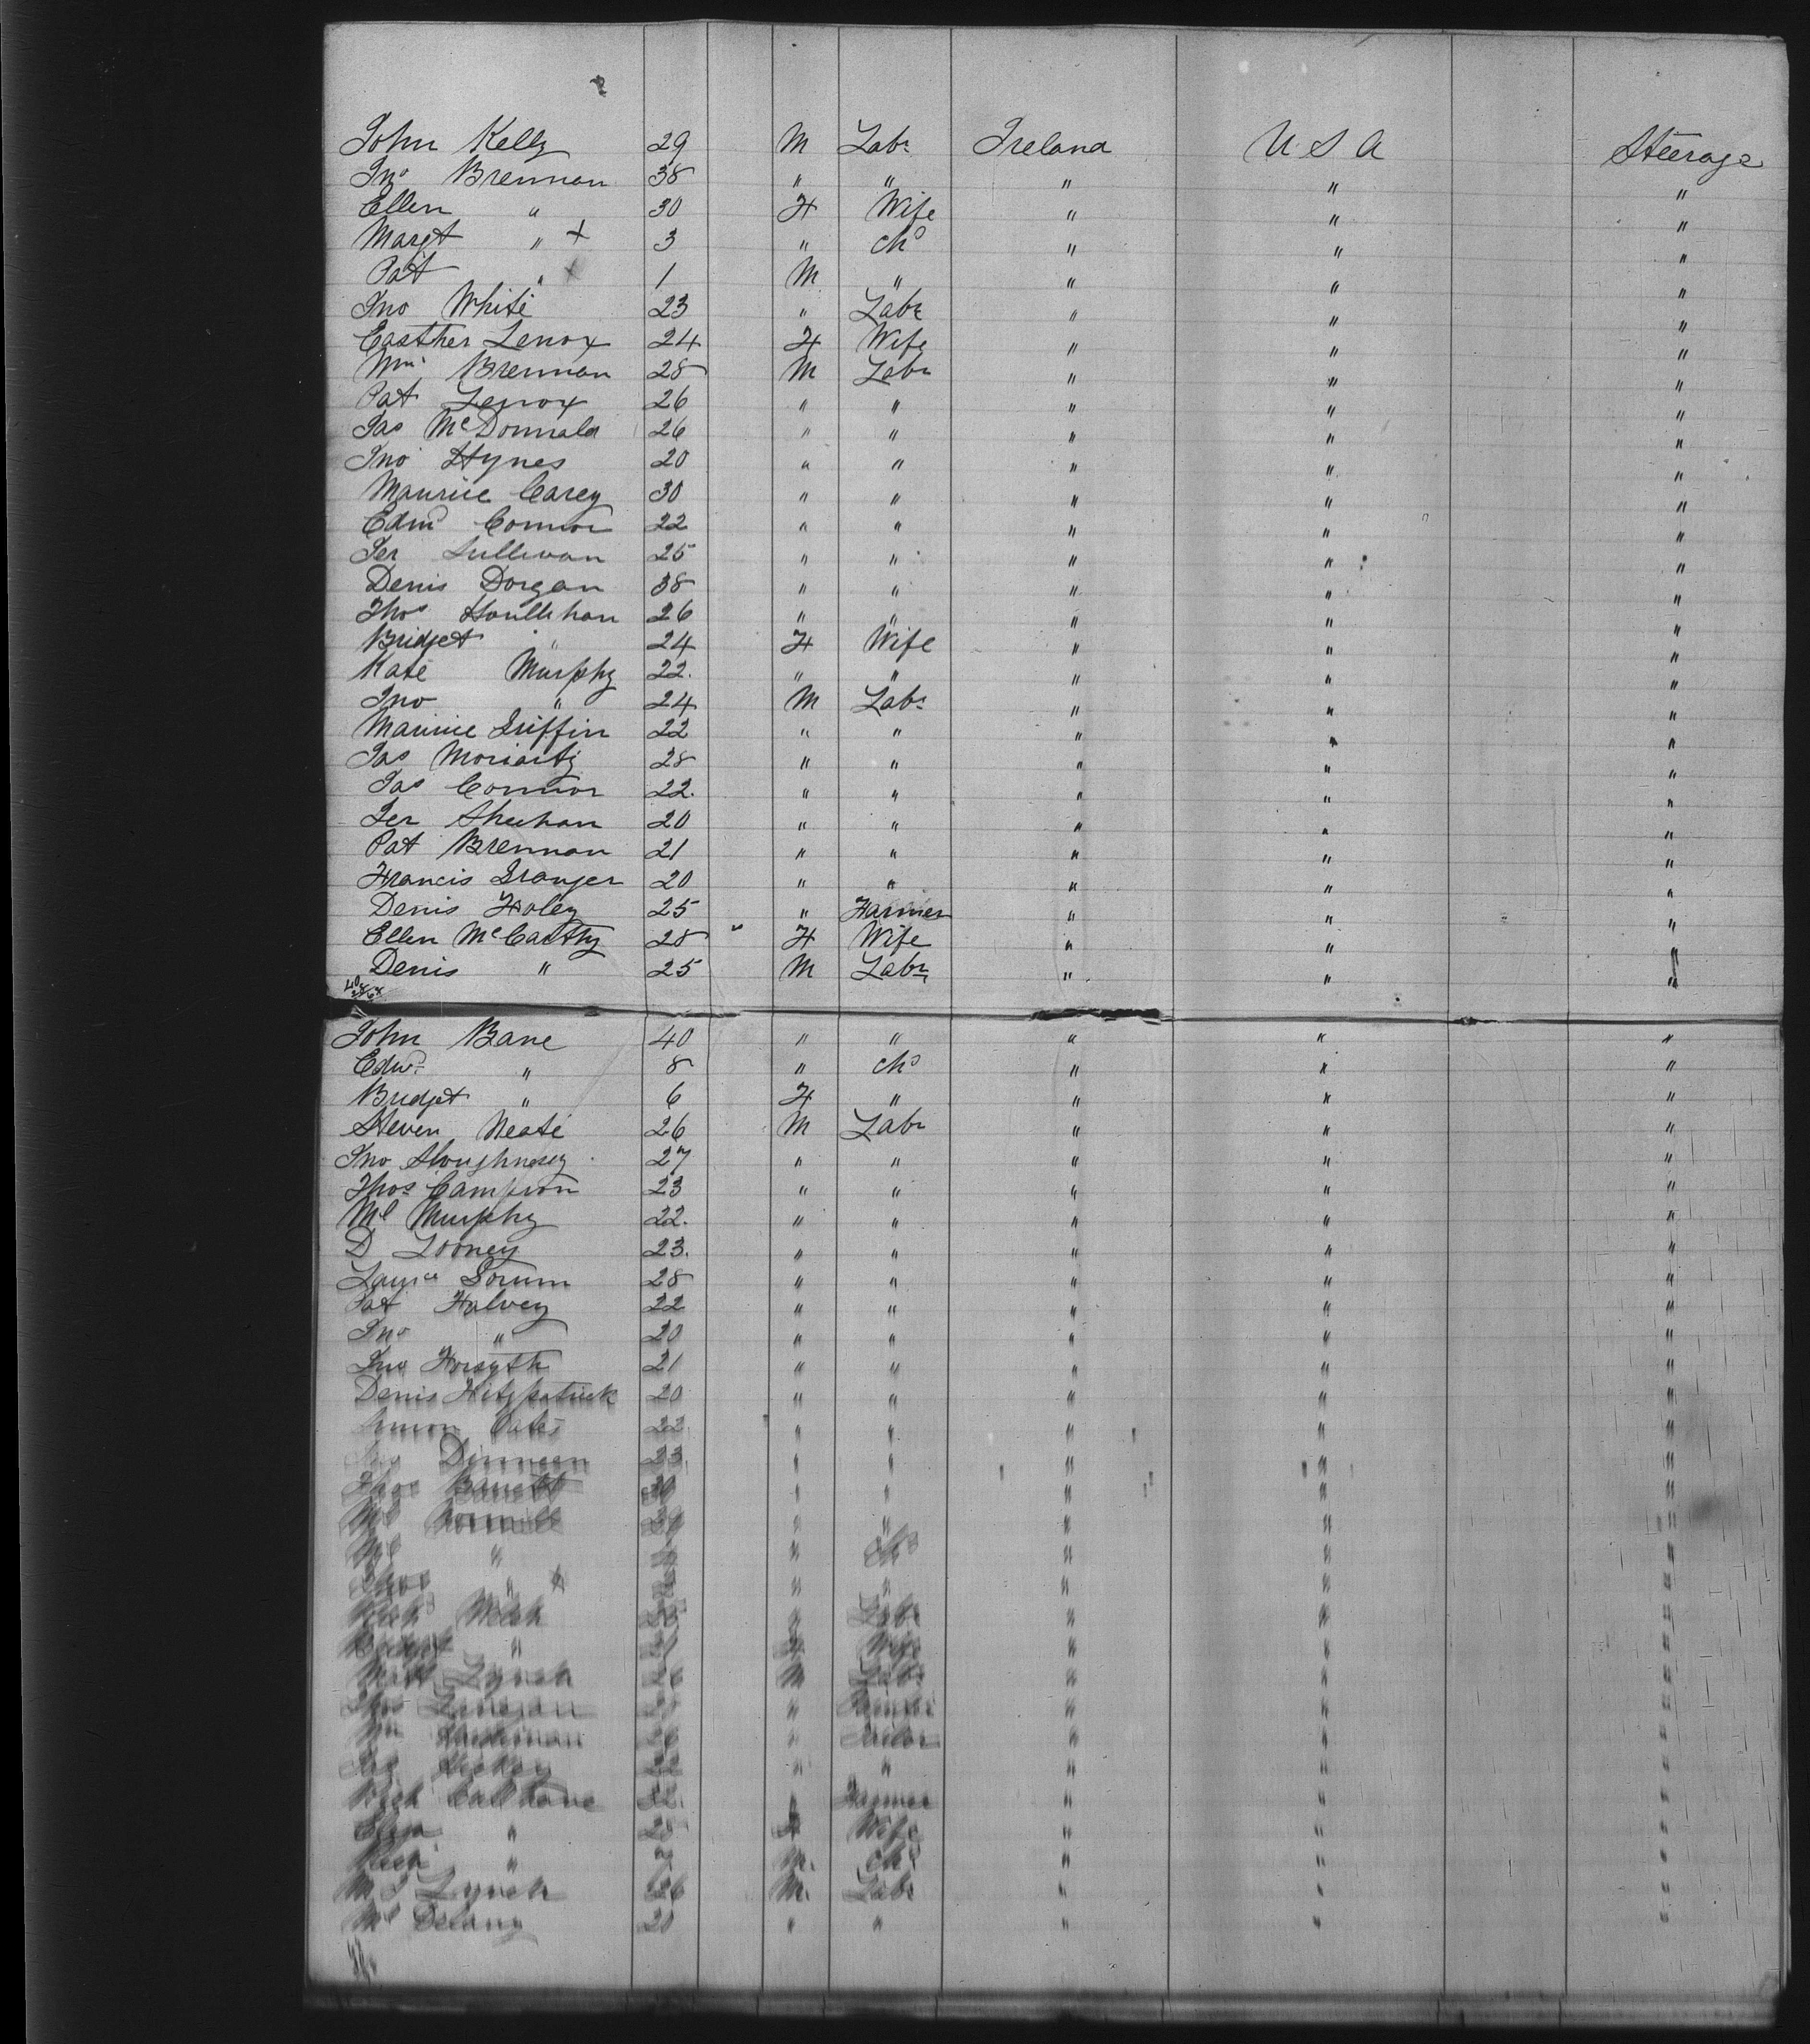 John Kelly 29 M Labr Ireland U S A Steerage
Jno Brennan 38 " " " " "
Ellen " 30 F Wife " " "
Margt " + 3 " Chd " " "
Pat " + 1 M " " " "
Jno White 23 " Labr " " "
Easther Lenox 24 F Wife " " "
Wm Brennan 28 M Labr " " "
Pat Lenox 26 " " " " "
Jas McDonnald 26 " " " " "
Jno Hynes 20 " " " " "
Maurice Carey 30 " " " " "
Edmd Connor 22 " " " " "
Jer Sullivan 25 " " " " "
Denis Dorgan 38 " " " " "
Thos Houllihan 26 " " " " "
Bridget " 24 F Wife " " "
Kate Murphy 22. " " " " "
Jno " 24 M Labr " " "
Maurice Griffin 22 " " " " "
Jas Moriarty 28 " " " " "
Jas Connor 22. " " " " "
Jer Sheehan 20 " " " " "
Pat Brennan 21 " " " " "
Francis Granger 20 " " " " "
Denis Foley 25 " Farmer " " "
Ellen McCarthy 28 " F Wife " " "
Denis " 25 M Labr " " "
John Bane 40 " " " " "
Edwd " 8 " Chd " " "
Bridget " 6 F " " " "
Steven Neate 26 M Labr " " "
Jno Shoughnesy 27 " " " " "
Thos Campion 23 " " " " "
Ml Murphy 22. " " " " "
D Looney 23. " " " " "
Lauce Gorum 28 " " " " "
Pat Halvey 22 " " " " "
Jno " 20 " " " " "
Jno Forsyth 21 " " " " "
Denis Fitzpatrick 20 " " " " "
22 " " " " "
Dinneen 23. " " " " "
Thos Barrett " " " " "
Ml " " " " "
Ml " " Chd " " "
Thos " + " " " " "
Richd Welsh " Labr " " "
Bridget " F Wife " " "
Matt Lynch 26 M Labr " " "
Thos Linegan " " " "
Wm " " " "
22 " " " " "
Rich Callihane " Farmer " " "
Eliza " 28 F Wife " " "
Rich " M. Chd " " "
M J Lynch 26 M. Labr " " "
Ml Delany 20 " " " " "